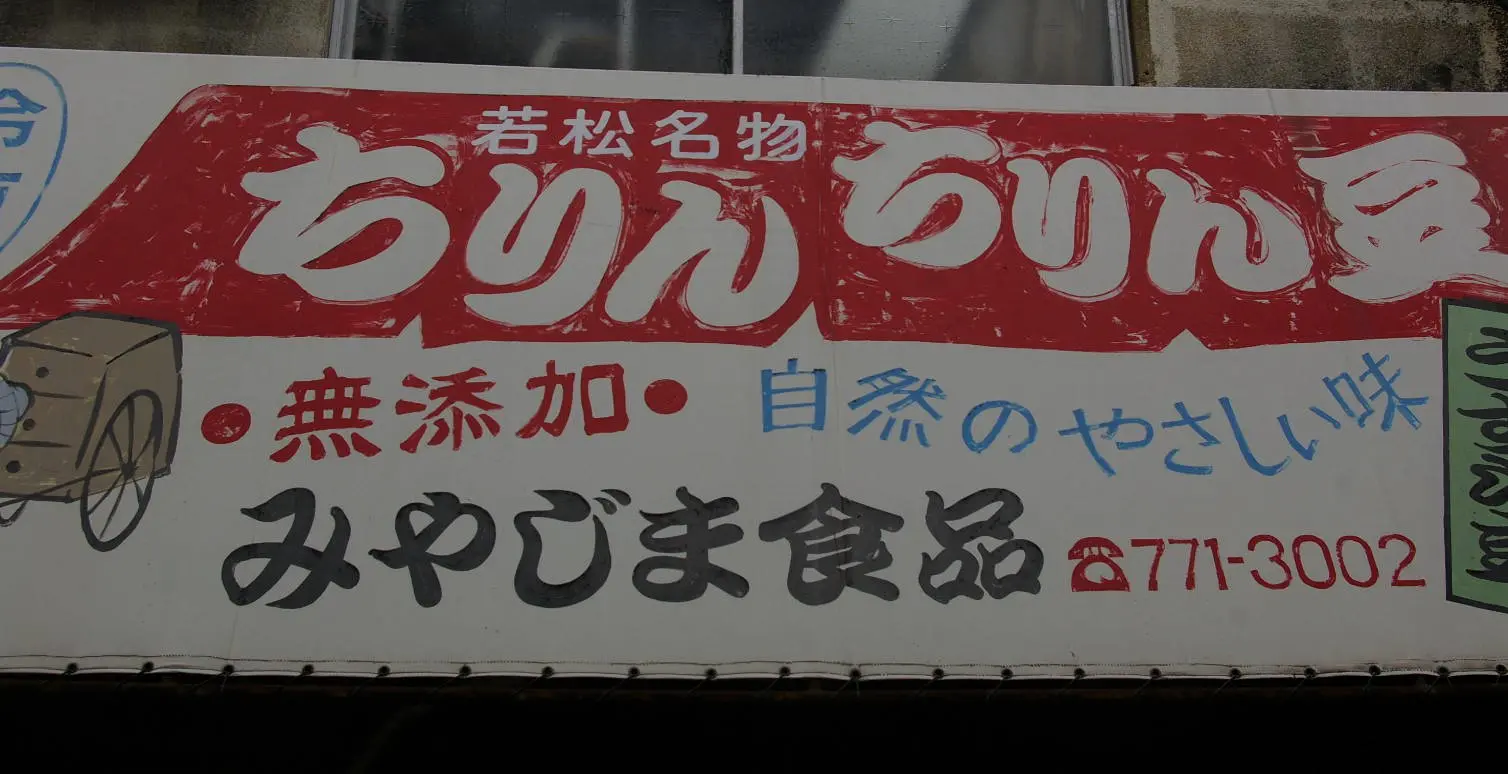 若松名物
ちりんちりん豆
•無添加• 自然のやさしい味
みやじま食品 ☎771-3002